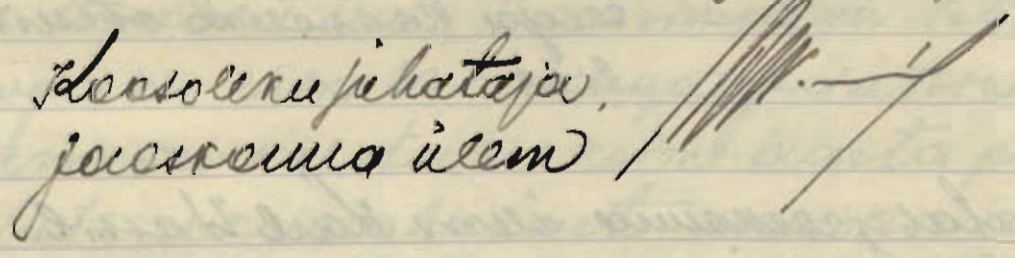 Koosoleku juhataja,
jaoskonna ülem